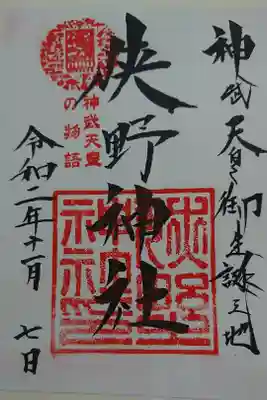 神武天皇御生誕之地
狭野神社
神武天皇
の物語
令和二年十一月七日